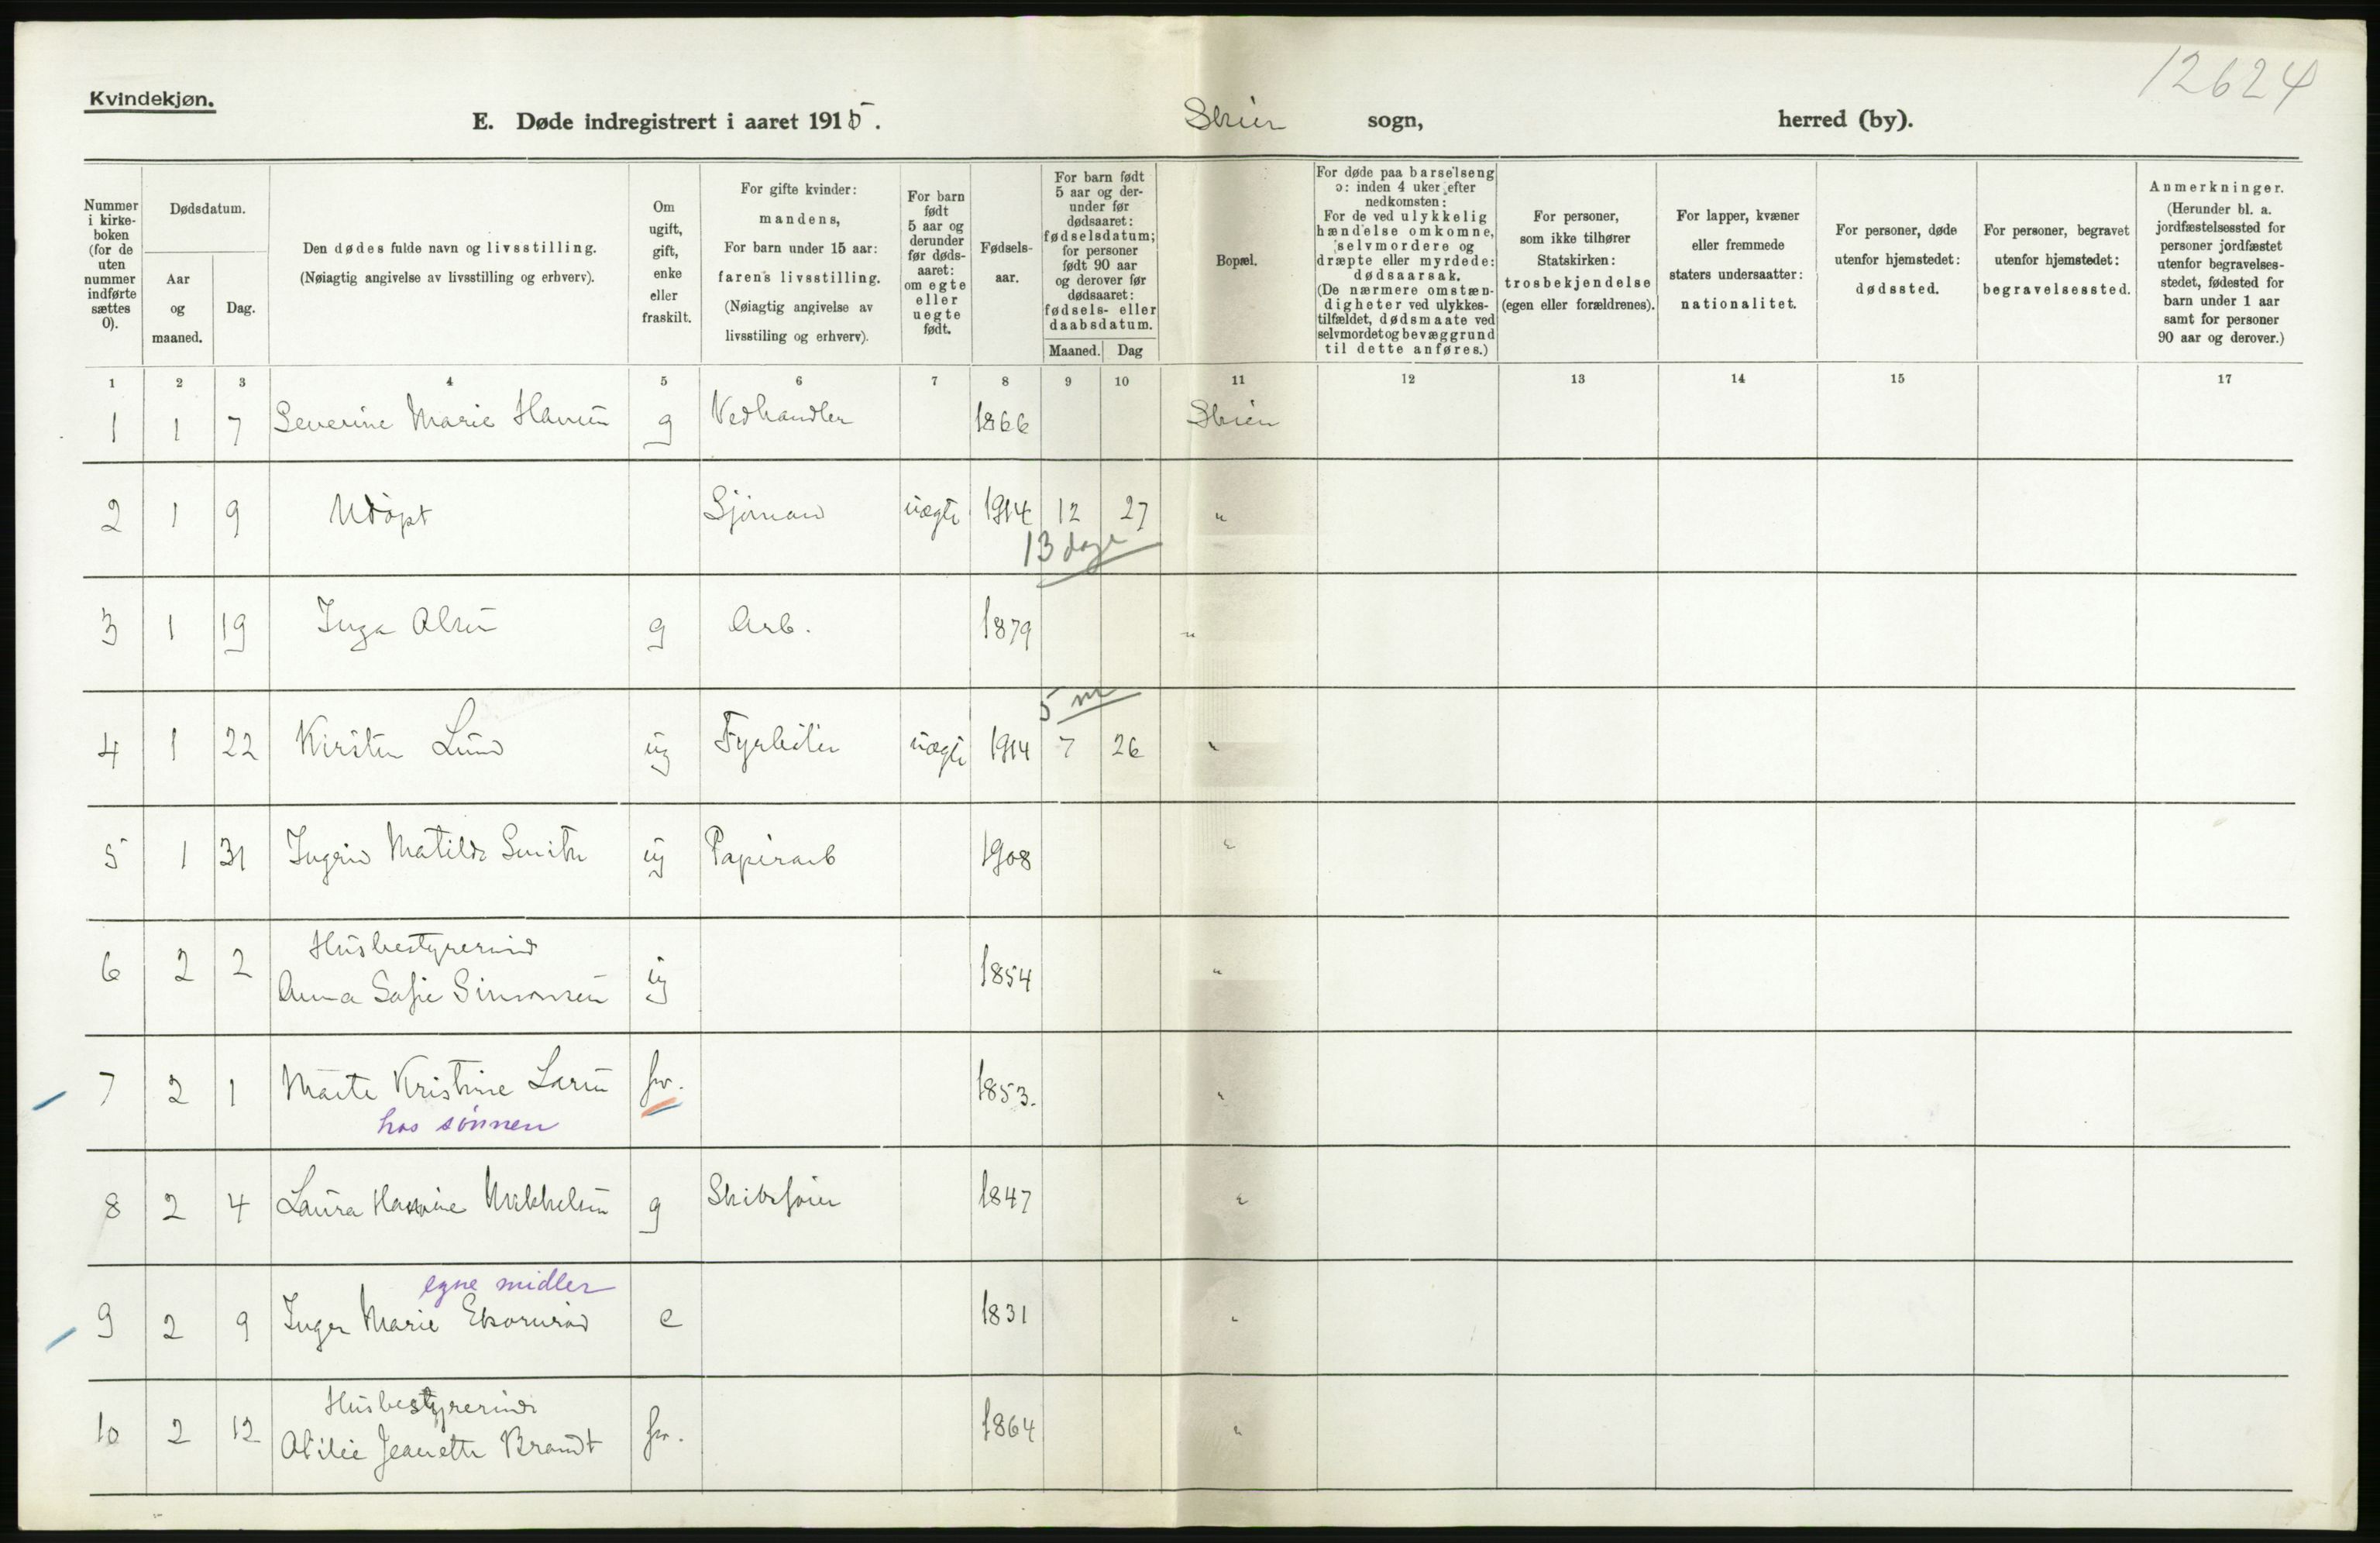 12624
Kvindekjøn.
E. Døde indregistrert i aaret 1915. Skien sogn, herred (by).
Nummer i kirkeboken (for de uten nummer indførte sættes 0).
Dødsdatum.
Aar og maaned.
Dag.
Den dødes fulde navn og livsstilling.
(Nøiagtig angivelse av livsstilling og erhverv).
Om ugift, gift, enke eller fraskilt.
For gifte kvinder: mandens,
For barn under 15 aar: farens livsstilling.
(Nøiagtig angivelse av livsstiling og erhverv).
For barn født 5 aar og derunder før dødsaaret: om egte eller uegte født.
Fødselsaar.
For barn født 5 aar og derunder før dødsaaret: fødselsdatum; for personer født 90 aar og derover før dødsaaret: fødsels- eller daabsdatum.
Maaned. Dag
Bopæl.
For døde paa barselseng ɔ: inden 4 uker efter nedkomsten:
For de ved ulykkelig hændelse omkomne, selvmordere og dræpte eller myrdede: dødsaarsak.
(De nærmere omstændigheter ved ulykkestilfældet, dødsmaate ved selvmordet og bevæggrund til dette anføres.)
For personer, som ikke tilhører Statskirken: trosbekjendelse (egen eller forældrenes).
For lapper, kvæner eller fremmede staters undersaatter: nationalitet.
For personer, døde utenfor hjemstedet: dødssted.
For personer, begravet utenfor hjemstedet: begravelsessted.
Anmerkninger.
(Herunder bl. a. jordfæstelsessted for personer jordfæstet utenfor begravelsesstedet, fødested for barn under 1 aar samt for personer 90 aar og derover.)
1 2 3 4 5 6 7 8 9 10 11 12 13 14 15 17
1 1 7 Severine Marie Hansen g Vedhandler 1866 Skien
2 1 9 Udöpt Sjömand uægte 1914 12 27 "
13 dage
3 1 19 Inga Olsen g Arb. 1879 "
5 m
4 1 22 Kirsten Lund ug Fyrbøter uægte 1914 7 26 "
5 1 31 Ingrid Matilde Smith ug Papirarb 1908 "
Husbestyrerinde
6 2 2 Anna Sofie Simonsen ug 1854 "
7 2 1 Marte Kristine Larsen frr. 1853. "
hos sönnen
8 2 4 Laura Hansine Mikkelsen g Skibsfører 1847 "
egne midler
9 2 9 Inger Marie Ekornröd e 1831 "
Husbestyrerinde
10 2 12 Otilie Jeanette Brandt frr. 1864 "